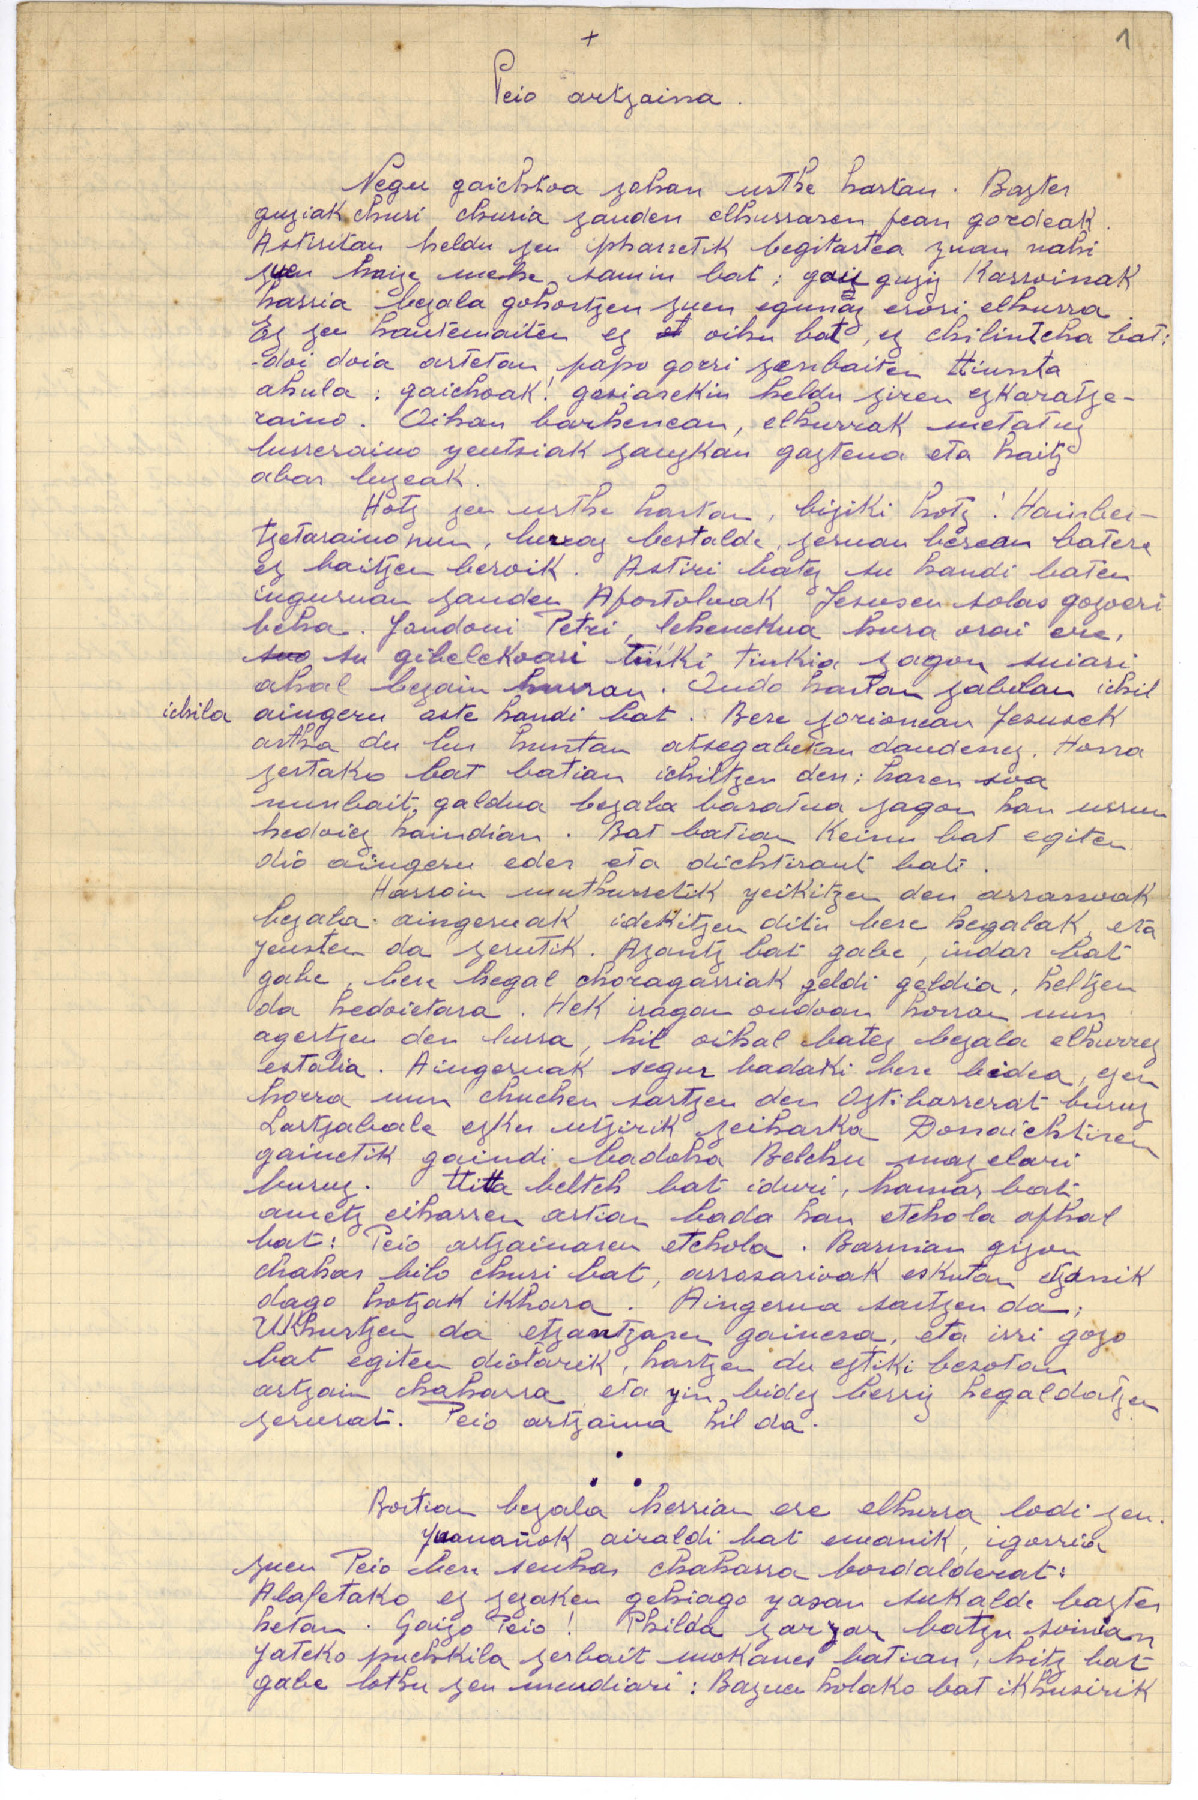 +
1
Peio artzaina.
Negu gaichtoa zohan urthe hartan. Bazter
guziak churi churia zauden elhurraren pean gordeak.
Astiritan heldu zen pharretik begitartea zuan nahi
zuen haize mehe samin bat ; gau guziz Karroinak
harria bezala gohortzen zuen egunaz erori elhurra.
Ez zen hautemaiten ez oihu bat, ez chilintcha bat :
- doi doia artetan papo gorri zenbaiten ttiunta
ahula : gaichoak! gosiarekin heldu ziren ezkaratze-
raino. Oihan barhenean, elhurrak metatuz
lurreraino yeutsiak zauzkan gaztena eta haitz
abar luzeak.
Hotz zen urthe hartan, biziki hotz! Hainber-
tzetaraino nun, beraz bestalde, zeruan berean batere
ez baitzen beroik. Astiri batez su handi baten
inguruan zauden Apostoluak Jesusen solas gozoeri
beha. Jondoni Petri, lehenekua hura orai ere,
su gibelekoari tinki tinkia zagon suiari
ahal bezain hurran. Ondo hartan zabilan ichil
ichila aingeru aste handi bat. Bere zorionean Jesusek
artha du lur huntan atsegabetan daudenez. Horra
zertako bat batian ichiltzen den : haren soa
nunbait galdua bezala baratua zagon han urrun
hedoiez haindian. Bat batian Keinu bat egiten
dio aingeru eder eta dichtirant bati.
Harroin muthurretik yeikitzen den arranoak
bezala aingeruak idekitzen ditu bere hegalak eta
yeusten da zerutik. Azantz bat gabe, indar bat
gabe, bere hegal choragarriak geldi geldia, heltzen
da hedoietara. Hek iragan ondoan horran nun
agertzen den lurra, hil oihal batez bezala elhurrez
estalia. Aingeruak segur badaki bere bidea, ezen
horra nun chuchen sartzen den Oztibarrerat buruz
Lartzabale ezker utzirik zeiharka Donaichtiren
gainetik gaindi badoha Belchu mazelari
buruz. Ttitta beltch bat iduri, hamar bat
ametz eiharren artian bada han etchola aphal
bat : Peio artzainaren etchola. Barnian gizon
chahar bilo churi bat, arrosarioak eskutan etzanik
dago hotzak ikhara. Aingerua sartzen da ;
Ukhurtzen da etzantzaren gainera, eta irri gozo
bat egiten diotarik, hartzen du eztiki besotan
artzain chaharra eta yin bidez berriz hegaldatzen
zerurat. Peio artzaina hil da.
Bortian bezala herrian ere elhurra lodi zen.
Yuanañok airaldi bat emanik, igorria
zuen Peio bere senhar chaharra bordalderat :
Alafetako ez zezaken gehiago yasan sukalde bazter
hetan. Gaizo Peio! Philda zarzar batzu soinian
Jateko puchkila zerbait mokanes batian, hitz bat
gabe lothu zen mendiari : Bazuen holako bat ikhusirik